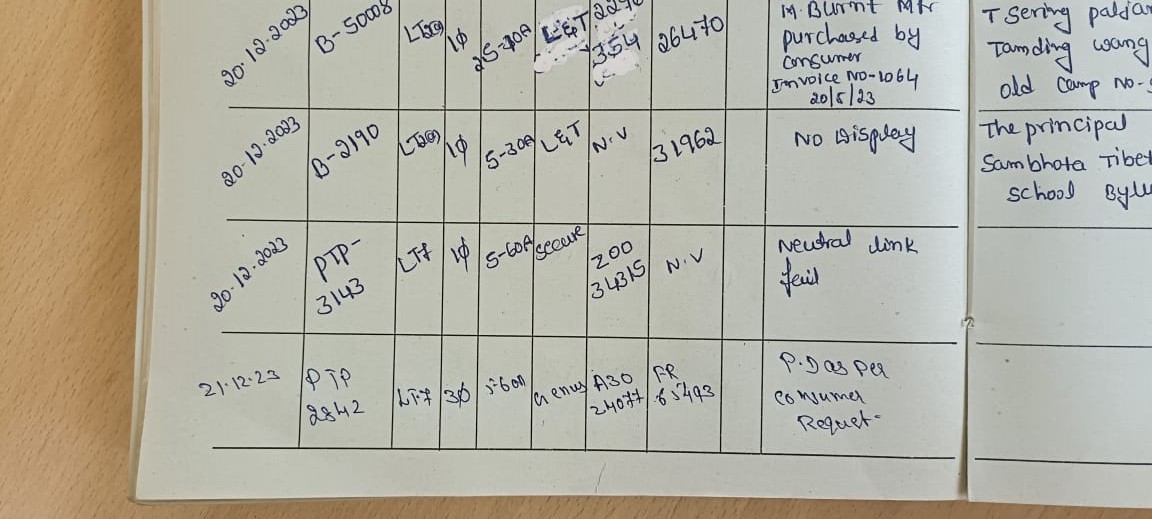 20.12.2023 B-50008 1φ L&T 354 26470 M. Burnt Mtr T Sering paldar
purchased by Tamding wang
consumer old camp No-
Invoice NO-1064
20/5/23
20.12.2023 B-2190 1φ 5-30A L&T N.V 31962 NO Display The principal
Sambhota Tibet
school Bylu
20.12.2023 PTP- LT7 1φ 5-60A secure Z00 N.V Neutral link
3143 34315 fail
21.12.23 PTP LT-7 3φ 5-60A Genus A30 FR P.D as per
2842 24077 65493 consumer
Requet-